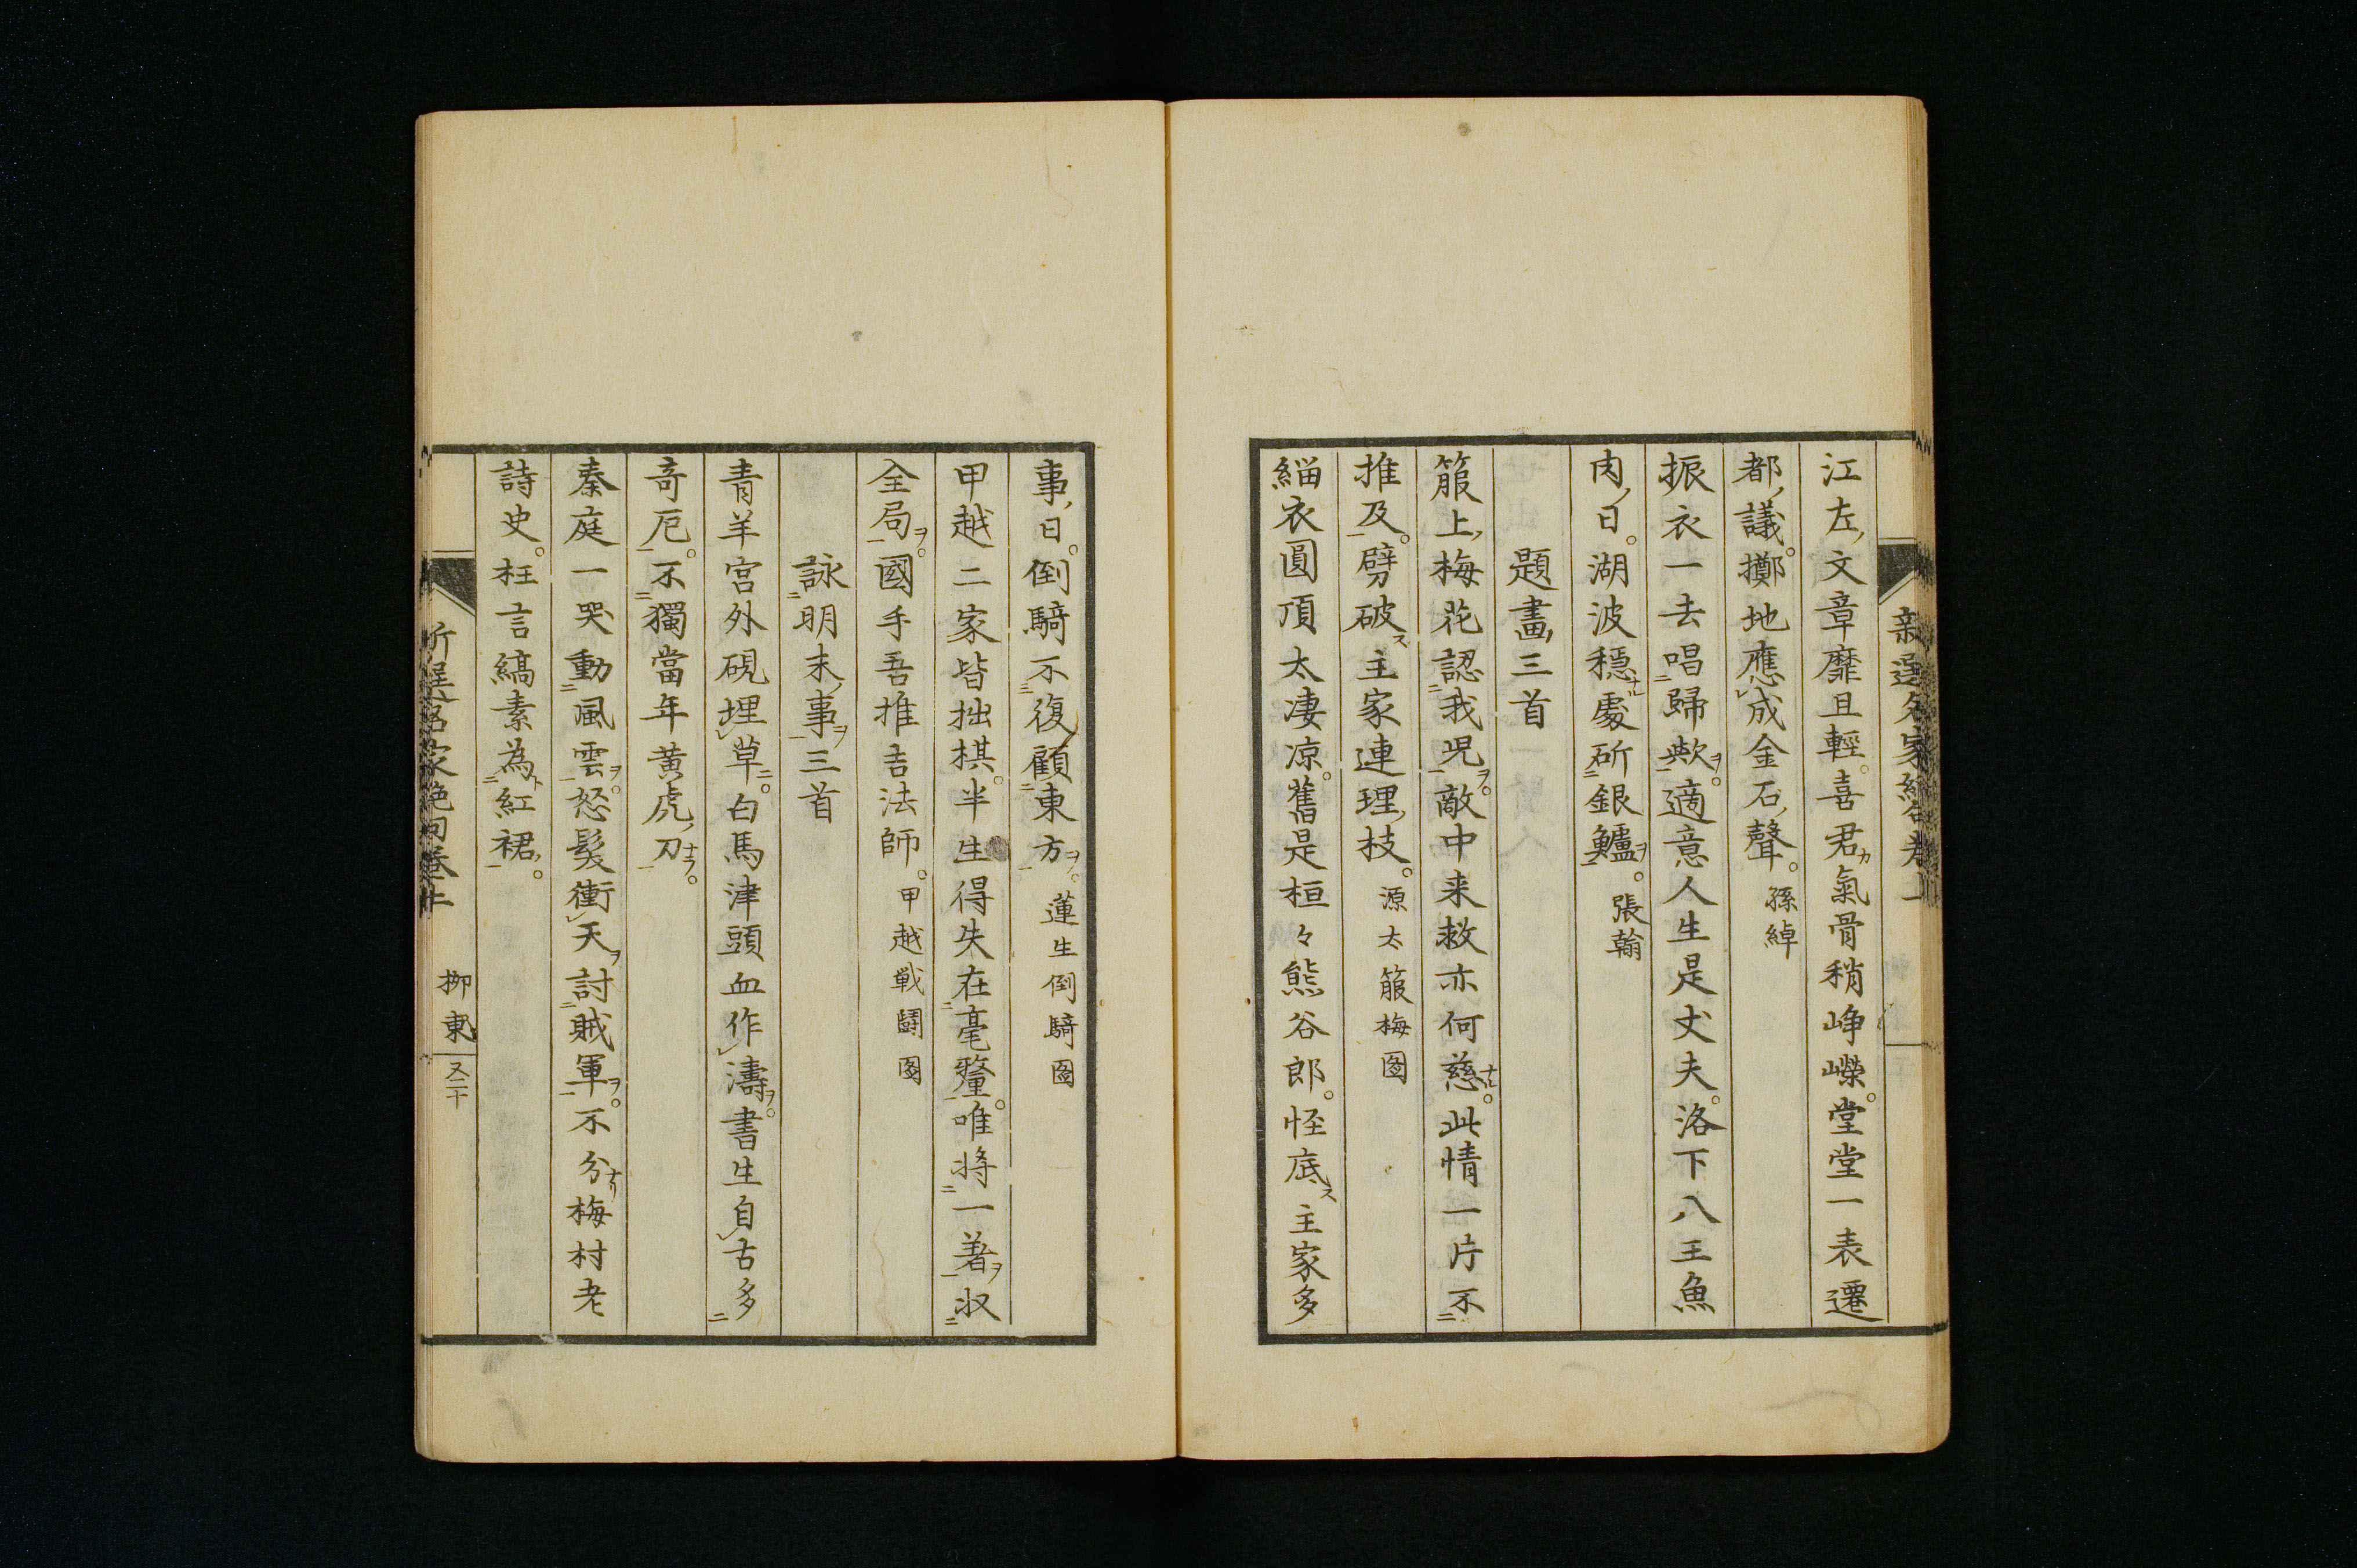 江左文章靡且輕。喜君氣骨稍崢嶸。堂堂一表遷
都議。擲地應成金石聲。孫綽
振衣一去唱歸歟。適意人生是丈夫。洛下八王魚
肉日。湖波穩處斫銀鱸。張翰
題畫三首
箙上梅花認我兒。敵中来救亦何慈。此情一片不
推及。劈破主家連理枝。源太箙梅圖
緇衣圓頂太凄凉。舊是桓々熊谷郎。怪底主家多
事日。倒騎不復顧東方。蓮生倒騎圖
甲越二家皆拙棋。半生得失在毫釐。唯將一著収
全局。國手吾推吉法師。甲越戦鬪圖
詠明末事三首
青羊宮外硯埋草。白馬津頭血作濤。書生自古多
奇厄。不獨當年黄虎刀。
秦庭一哭動風雲。怒髮衝天討賊軍。不分梅村老
詩史。枉言縞素為紅裙。
柳東
又二十